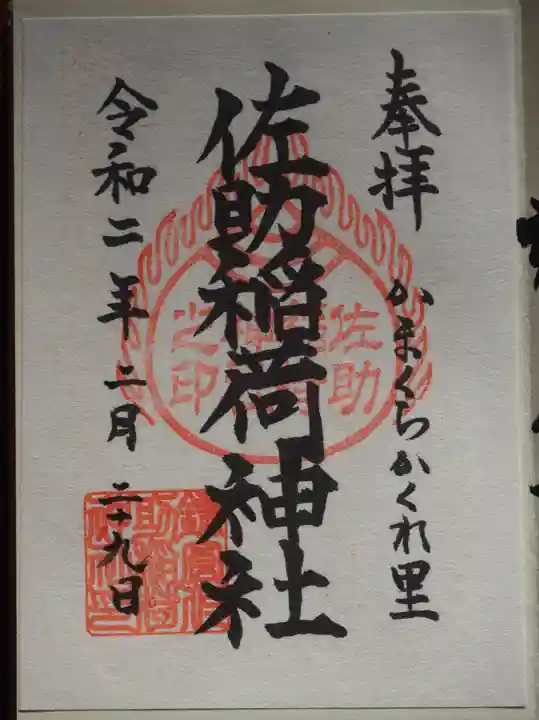 奉拝
かまくらかくれ里
佐助稲荷神社
令和二年二月二十九日
佐助
之印